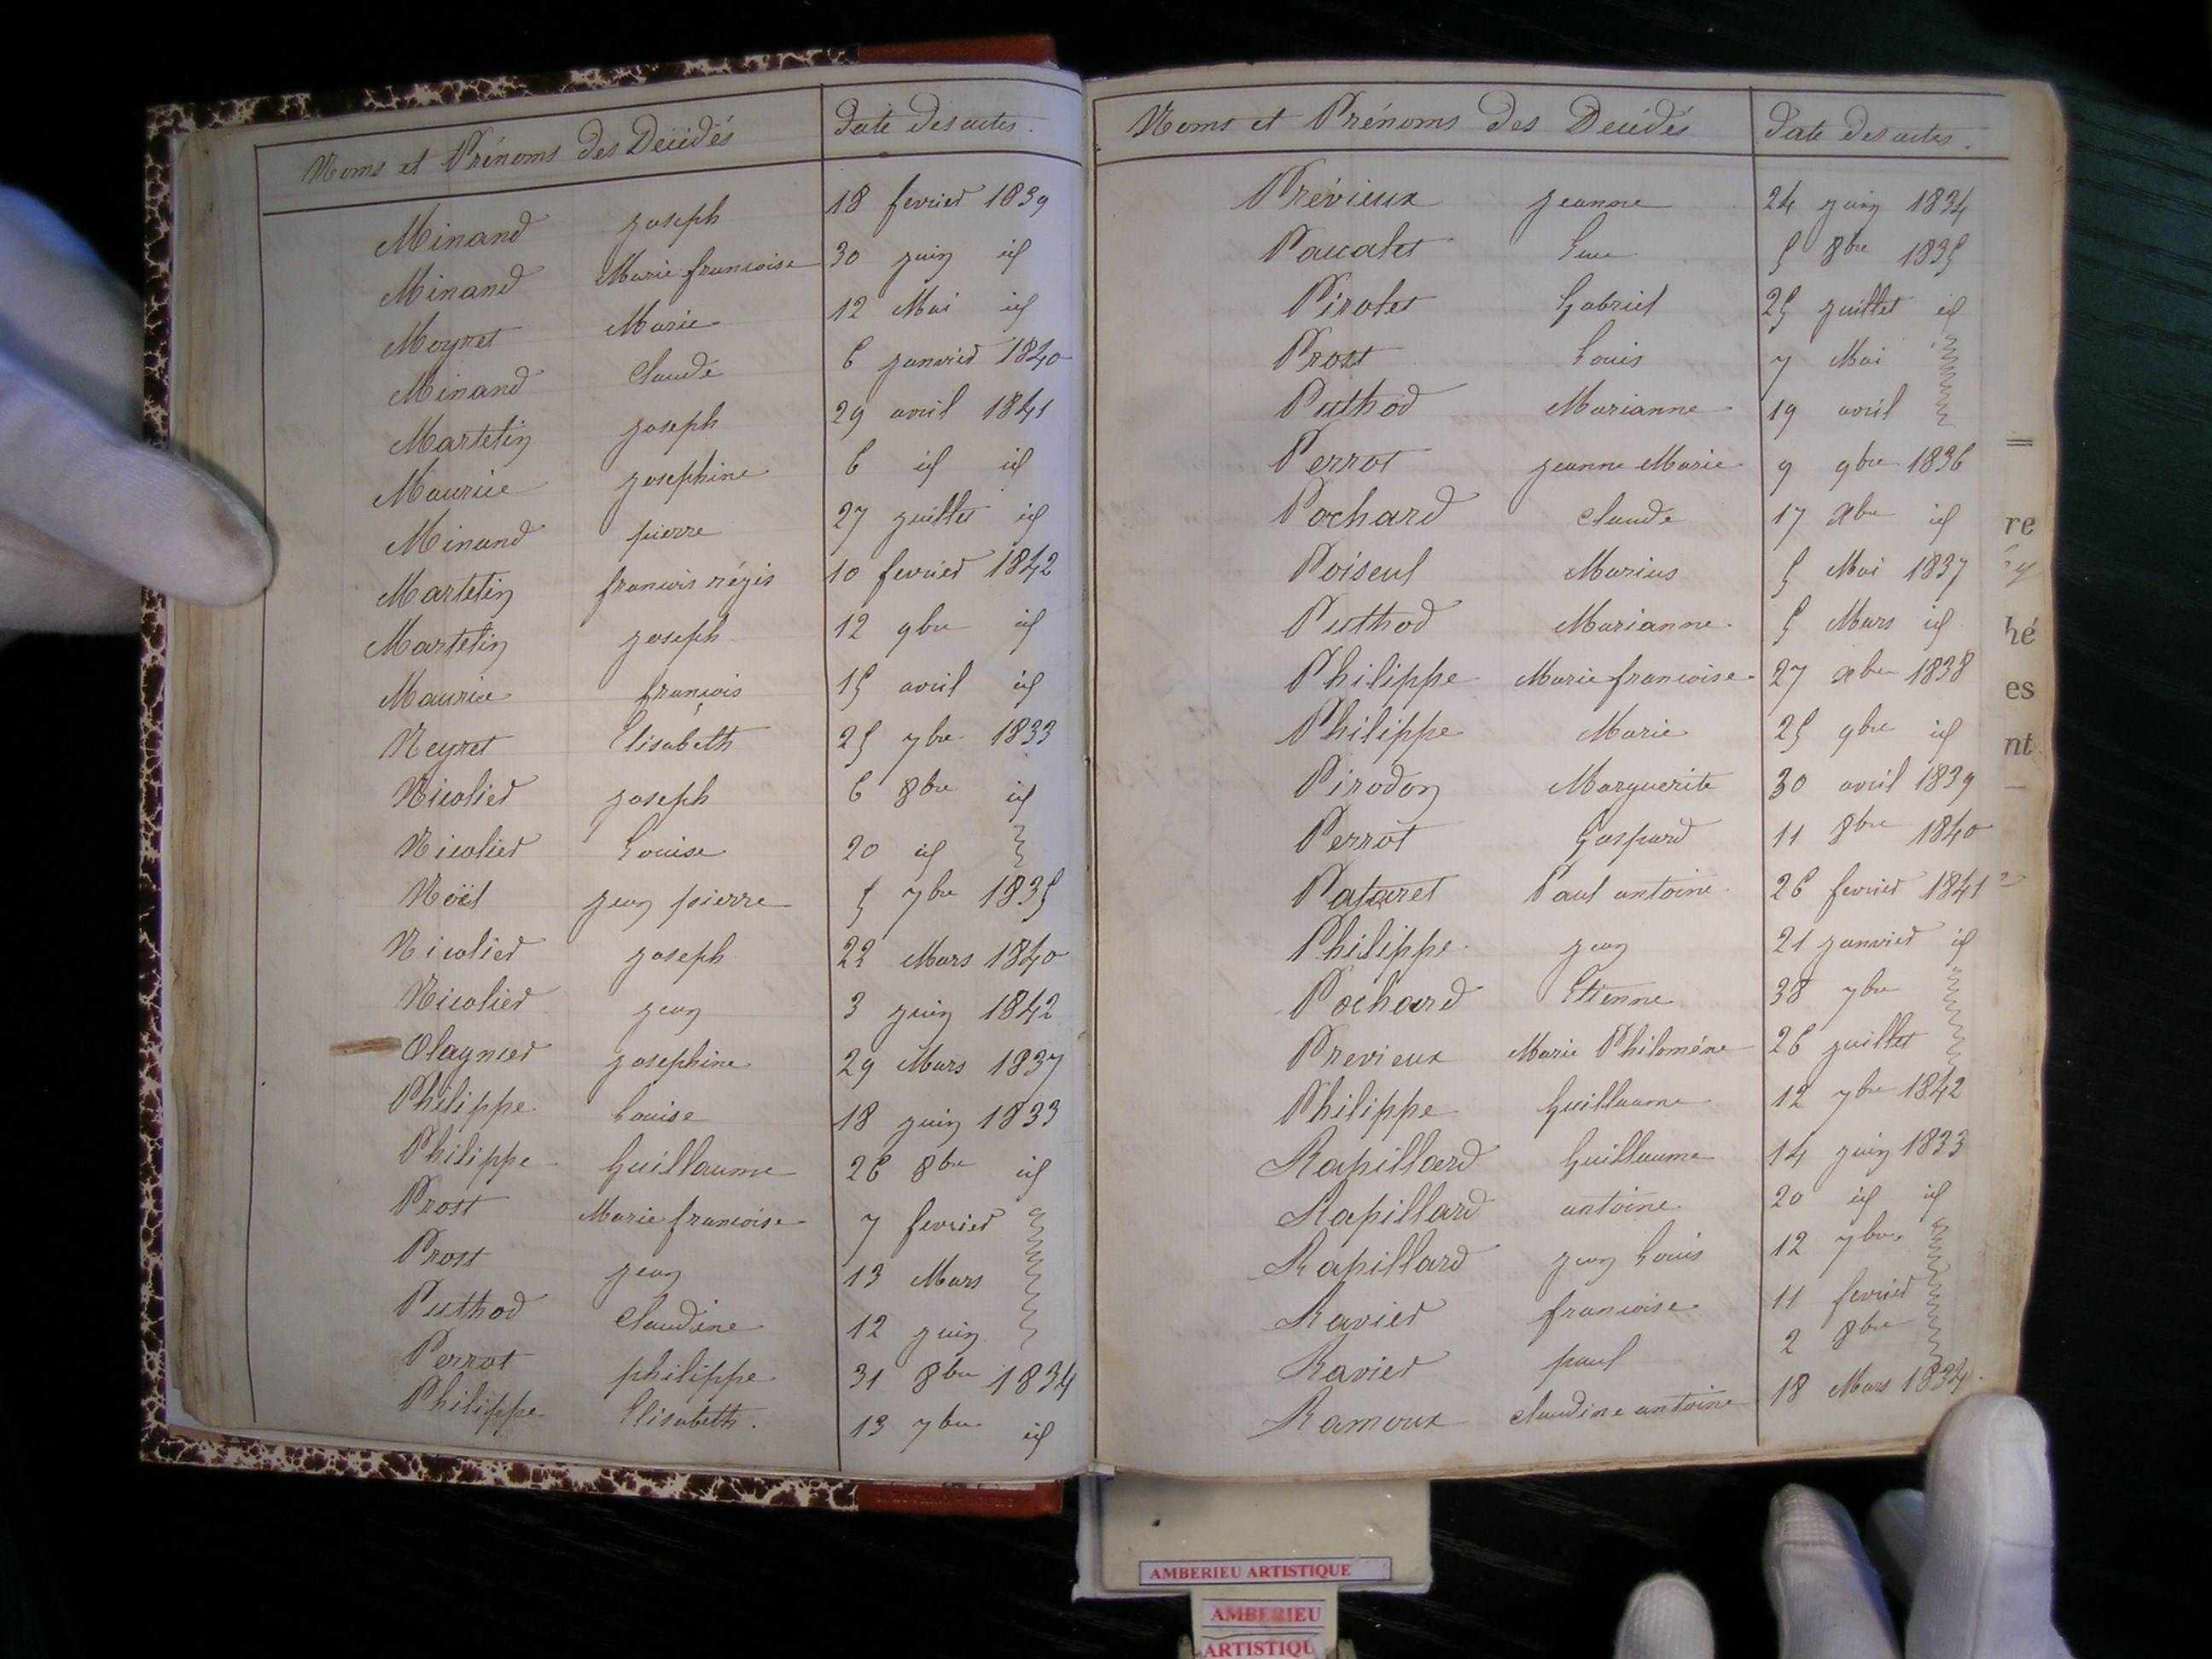 Noms et Prénoms des Décédés Date des actes.
Minand joseph 18 fevrier 1839
Minand Marie francoise 30 juin id
Meyret Marie 12 Mai id
Minand Claude 6 janvier 1840
Martelin joseph 29 avril 1841
Maurice josephine 6 id id
Minand pierre 27 juillet id
Martelin francois régis 10 fevrier 1842
Martelin joseph 12 9bre id
Maurice françois 15 avril id
Neyret Elisabeth 25 7bre 1833
Nicolier joseph 6 8bre id
Nicolier Louise 20 id
Noël jean pierre 5 7bre 1835
Nicolier joseph 22 Mars 1840
Nicolier jean 3 juin 1842
Olagnier josephine 29 Mars 1837
Philippe Louise 18 juin 1833
Philippe Guillaume 26 8bre id
Prost Marie francoise 7 fevrier
Prost jean 13 Mars
Puthod Claudine 12 juin
Perrot philippe 31 8bre 1834
Philippe Elisabeth. 13 7bre id
Noms et Prénoms des Décédés Date des actes.
Prévieux jeanne 24 juin 1834
Paucalet Luc 5 8bre 1835
Pirolet Gabriel 25 juillet id
Prost Louis 7 Mai
Puthod Marianne 19 avril
Perrot jeanne Marie 9 9bre 1836
Pochard Claude 17 Xbre id
Poiseul Marius 5 Mai 1837
Puthod Marianne. 5 Mars id
Philippe Marie francoise 27 xbre 1838
Philippe Marie 25 9bre id
Pirodon Marguerite 30 avril 1839
Perrot Gaspard 11 8bre 1840
Pataret Paul antoine 26 fevrier 1841
Philippe jean 21 janvier id
Pochard Etienne 7bre
Previeux Marie Philomène 26 juillet
Philippe Guillaume 12 7bre 1842
Rapillard Guillaume 14 juin 1833
Rapillard antoine 20 id id
Rapillard jean Louis 12 7bre
Ravier francoise 11 fevrier
Ravier paul 2 8bre
Ramoux Claudine antoine 18 Mars 1834.
re
hé
es
nt
AMBERIEU ARTISTIQUE
AMBERIEU
ARTISTIQU